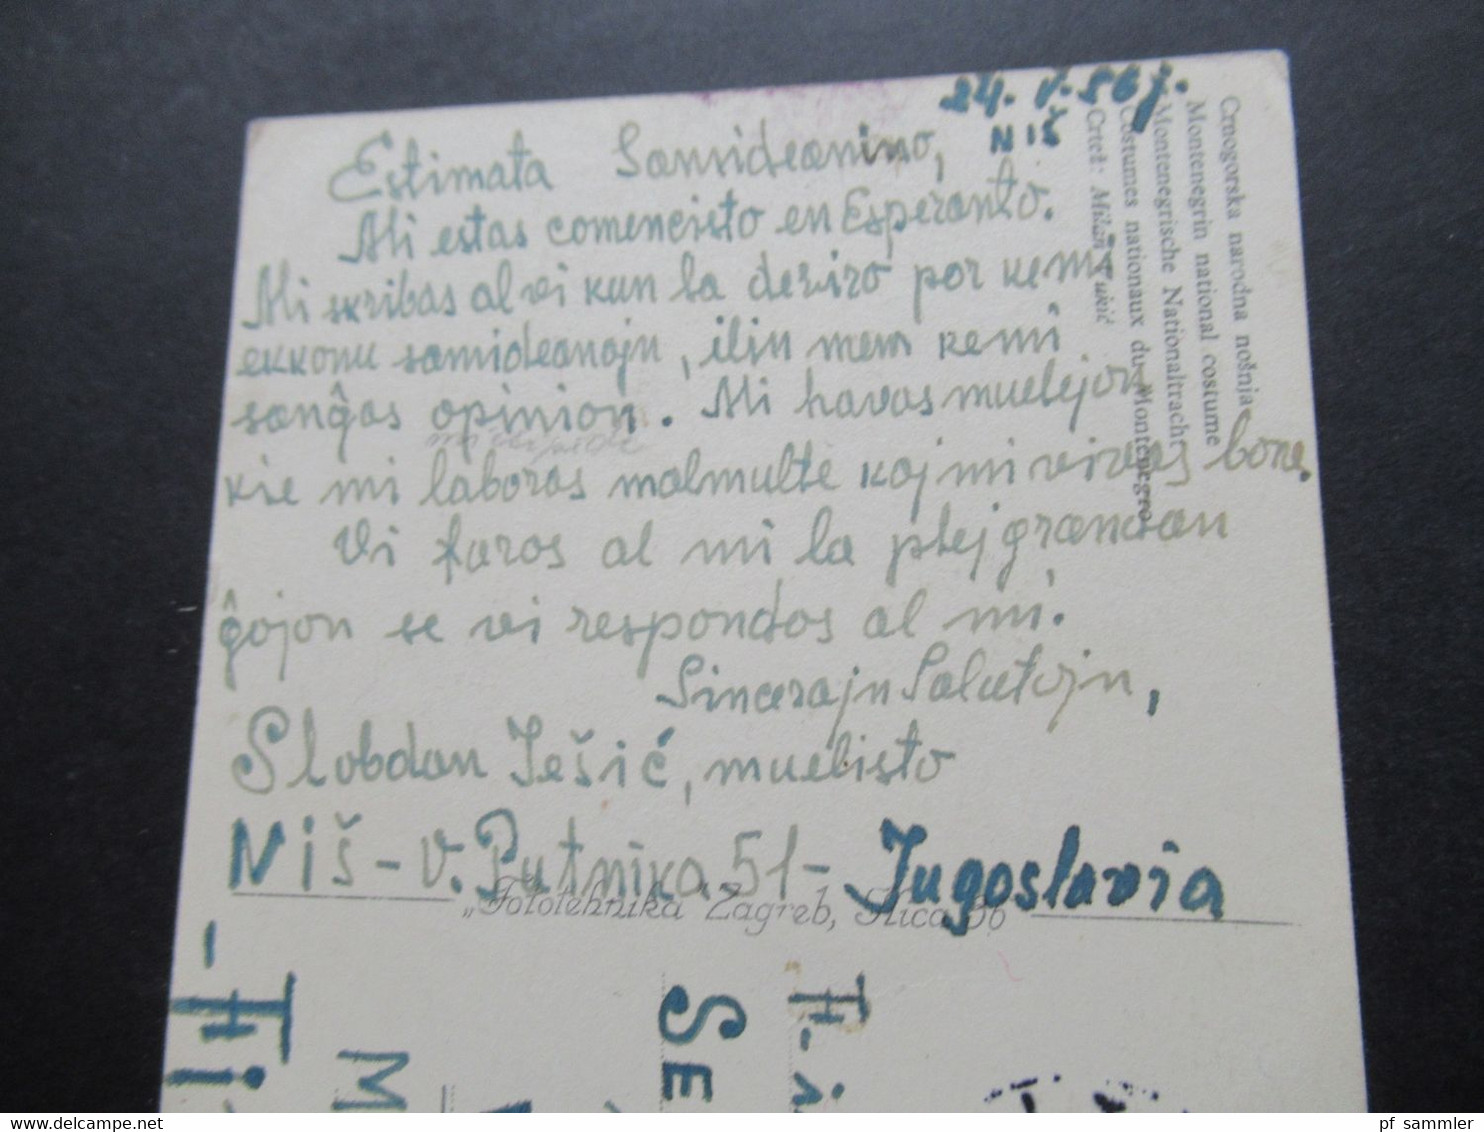 24. V. 56 j.
Niš
Estimata Samideanino,
Mi estas comencisto en Esperanto.
Mi skribas al vi kun la deziro por ke mi
ekkonu samideanojn, ilin mem ke mi
sanĝas opinion. Mi havas muelejon
kie mi laboras malmulte kaj mi vivas bone.
Vi faros al mi la plej grandan
ĝojon se vi respondos al mi.
Sincerajn Salutojn,
Slobdan Ješić, muelisto
Niš - V. Putnika 51 - Jugoslavia
Crnogorska narodna nošnja
Montenegrin national costume
Montenegrische Nationaltracht
Costumes nationaux du Montenegro
Crtež: Milan
„Fototehnika" Zagreb, Ilica
SE
M
pf_sammler